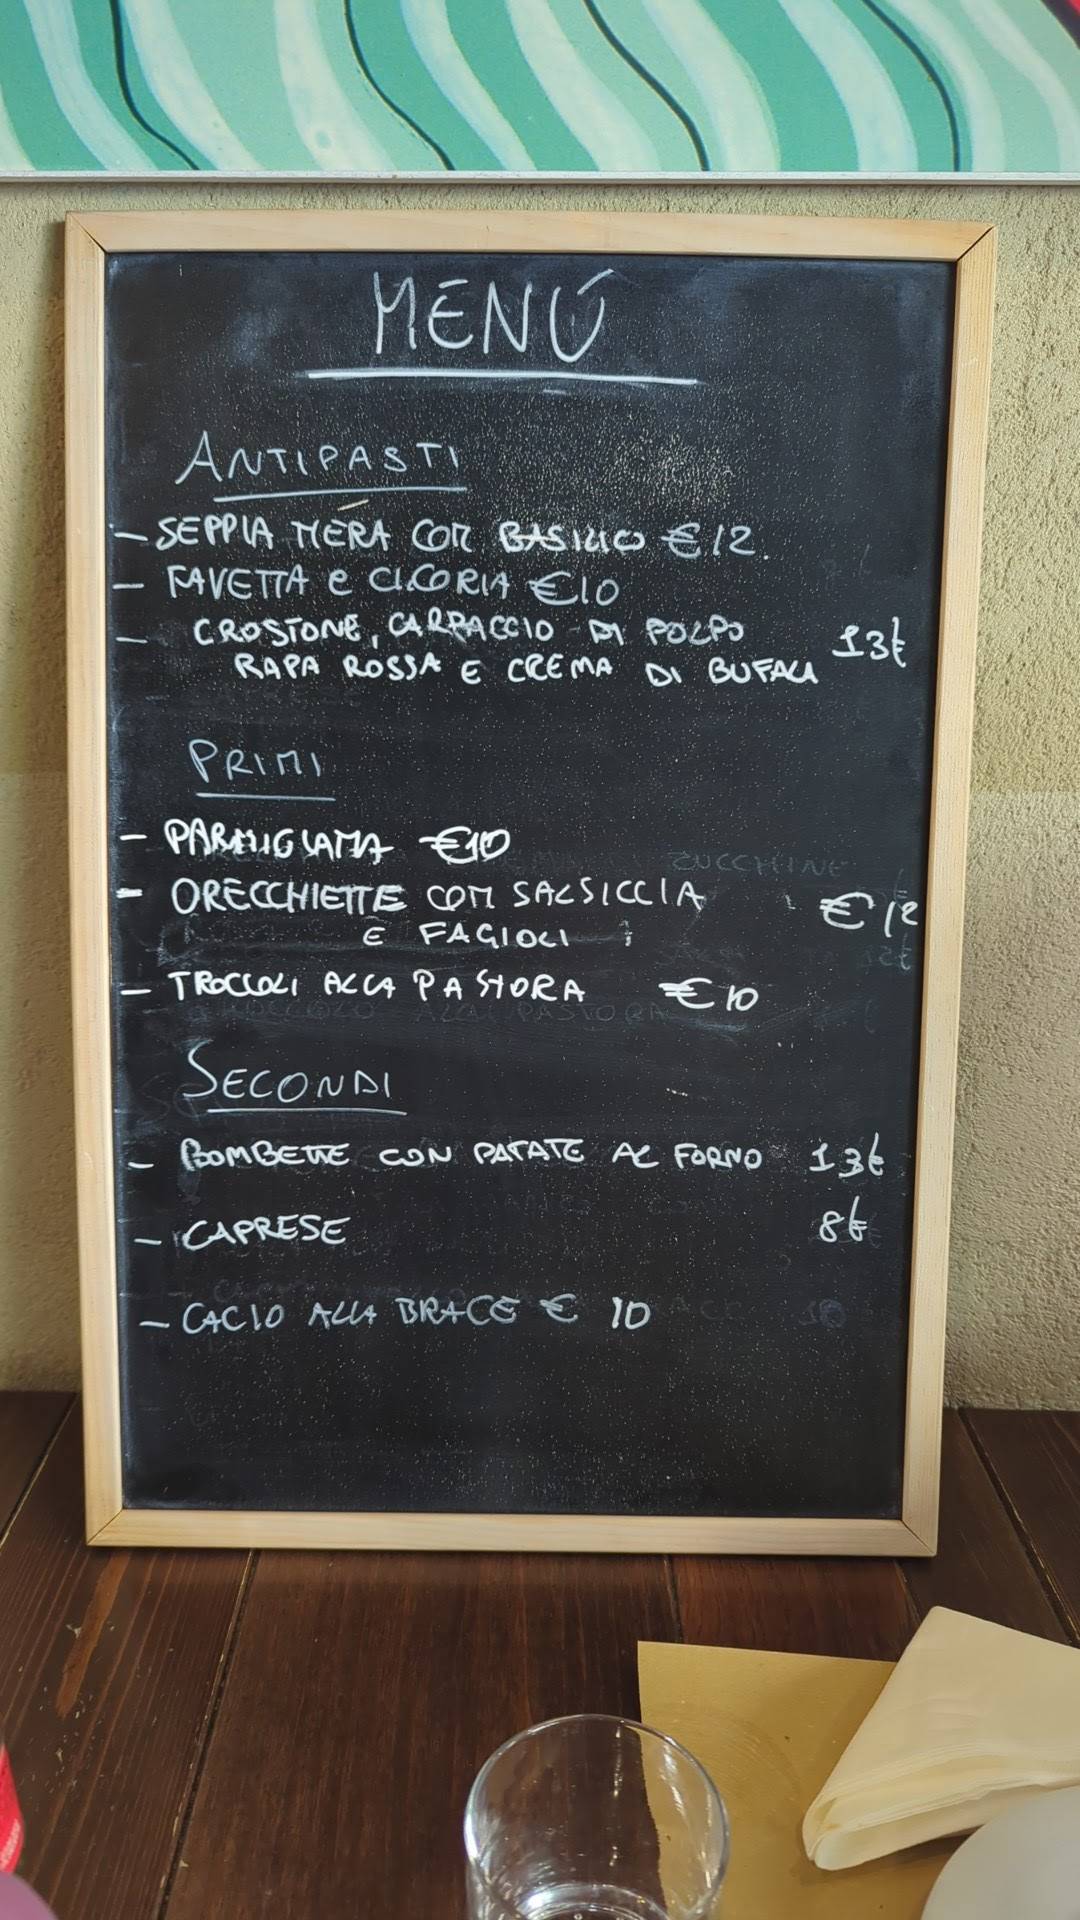 MENÚ
ANTIPASTI
- SEPPIA NERA CON BASILICO €12.
- FAVETTA e CICORIA €10
- CROSTONE, CARPACCIO DI POLPO 13€
RAPA ROSSA E CREMA DI BUFALA
PRIMI
- PARMIGIANA €10
ZUCCHINE
- ORECCHIETTE CON SALSICCIA €12
E FAGIOLI
- TROCCOLI ALLA PASTORA €10
ALLA PASTORA
SECONDI
- BOMBETTE CON PATATE AL FORNO 13€
- CAPRESE 8€
- CACIO ALLA BRACE € 10